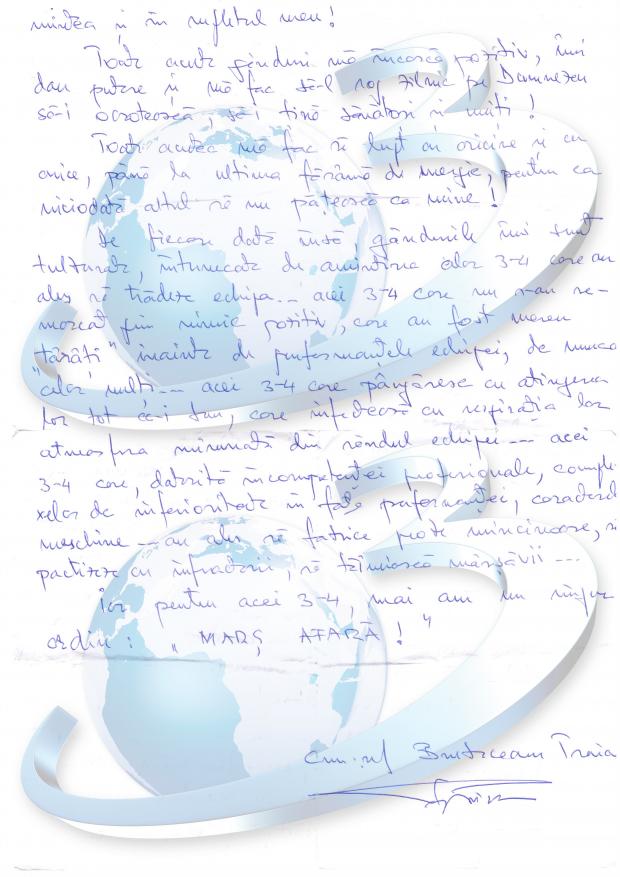 mintea și în sufletul meu!
Toate aceste gânduri mă încarcă pozitiv, îmi
dau putere și mă fac să-l rog zilnic pe Dumnezeu
să-i ocrotească, să-i țină sănătoși și uniți!
Toate acestea mă fac să lupt cu oricine și cu
orice, până la ultima fărâmă de energie, pentru ca
niciodată altul să nu pățească ca mine!
De fiecare dată însă, gândurile îmi sunt
tulburate, întunecate de amintirea celor 3-4 care au
ales să trădeze echipa... acei 3-4 care nu s-au re-
marcat prin nimic pozitiv, care au fost mereu
"târâți" înaintea de performanțele echipei, de munca
celor mulți... acei 3-4 care pângăresc cu atingerea
lor tot ce-i bun, care infectează cu respirația lor
atmosfera minunată din rândul echipei... acei
3-4 care, datorită incompetenței profesionale, comple-
xelor de inferioritate în fața performanței, caracterelor
meschine... au ales să fabrice probe mincinoase, să
pactizeze cu infractorii, să tăinuiască mârșăvii...
Iar pentru acei 3-4, mai am un singur
ordin: „MARȘ AFARĂ!"
Traia